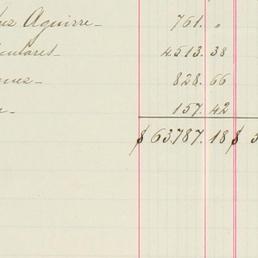 Aguirre 761. "
culares 4513. 38
828. 66
157. 42
$ 63.787. 18 $